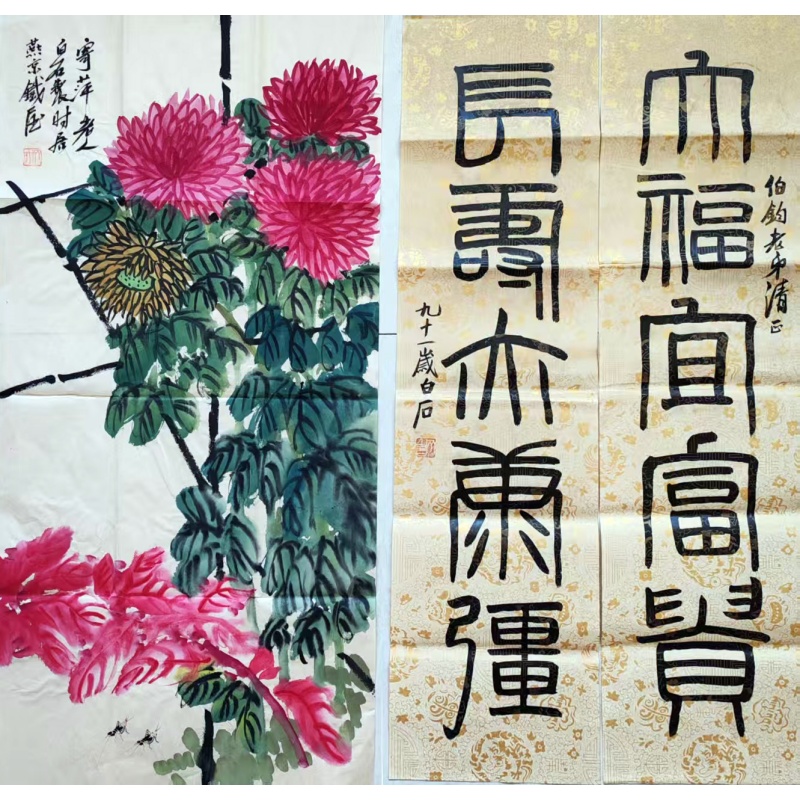 寄萍老人
白石製時居
燕京鐵屋
大福宜富貴
伯鈞老弟清正
長壽大康彊
九十一歲白石